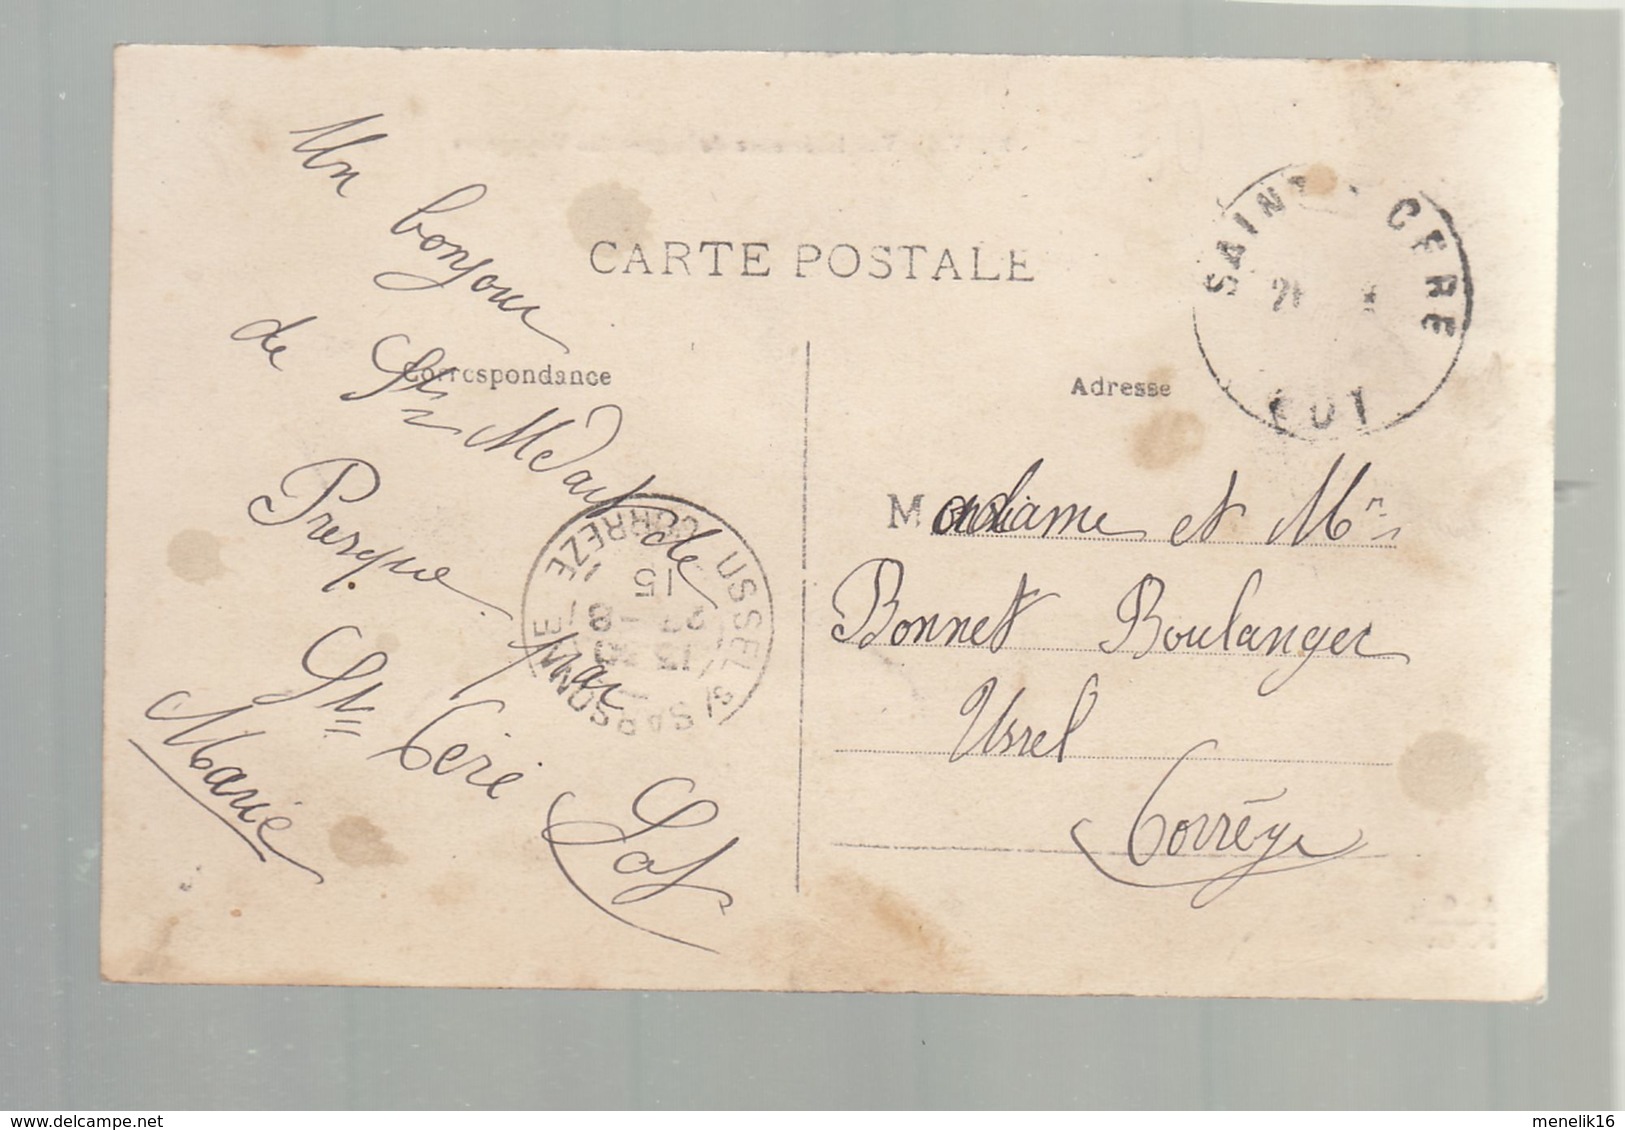 CARTE POSTALE
Correspondance
Adresse
Un bonjour
de St Médard de
Presque par
St Céré Lot
Marie
Madame et Mr
Bonnet Boulanger
Ussel
Corrèze
SAINT CERE
LOT
USSEL S/ SARSONNE
CORREZE
15
delcampe.net
menelik16